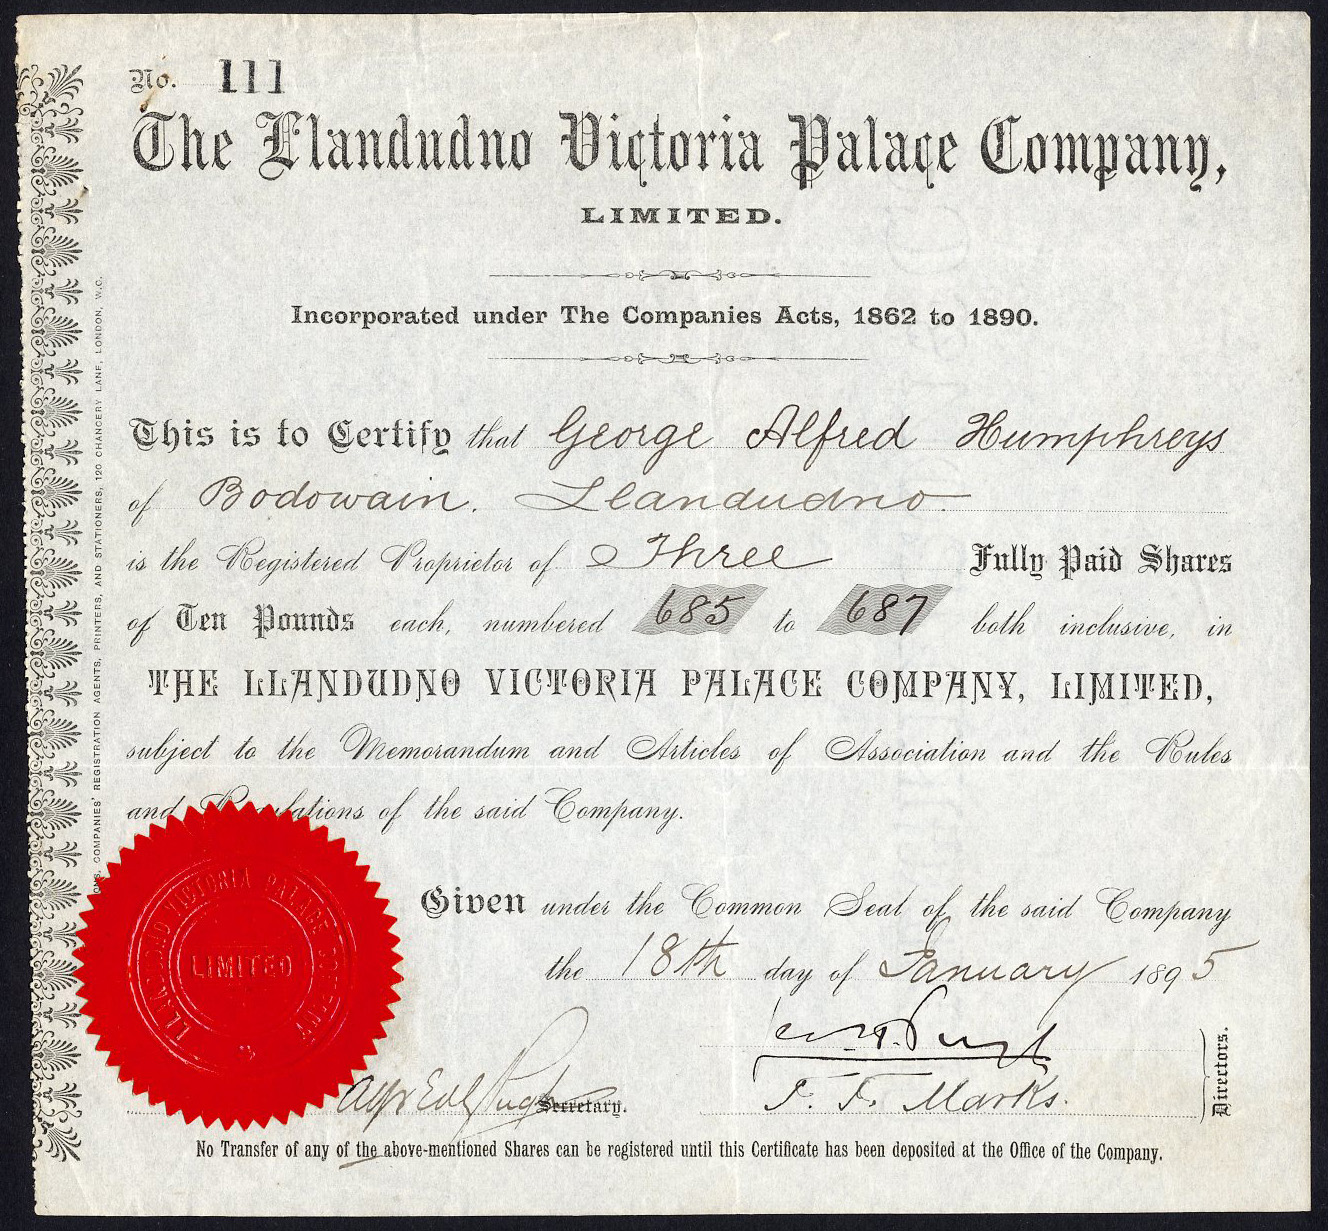 No. 111
The Llandudno Victoria Palace Company,
LIMITED.
Incorporated under The Companies Acts, 1862 to 1890.
This is to Certify that George Alfred Humphreys
of Bodowain. Llandudno
is the Registered Proprietor of Three Fully Paid Shares
of Ten Pounds each, numbered 685 to 687 both inclusive, in
THE LLANDUDNO VICTORIA PALACE COMPANY, LIMITED,
subject to the Memorandum and Articles of Association and the Rules
and Regulations of the said Company.
Given under the Common Seal of the said Company
the 18th day of January 1895
Alfred Pugh Secretary.
T. T. Marks.
Directors.
No Transfer of any of the above-mentioned Shares can be registered until this Certificate has been deposited at the Office of the Company.
LLANDUDNO VICTORIA PALACE COMPANY
LIMITED
COMPANIES' REGISTRATION AGENTS, PRINTERS, AND STATIONERS, 120 CHANCERY LANE, LONDON, W.C.